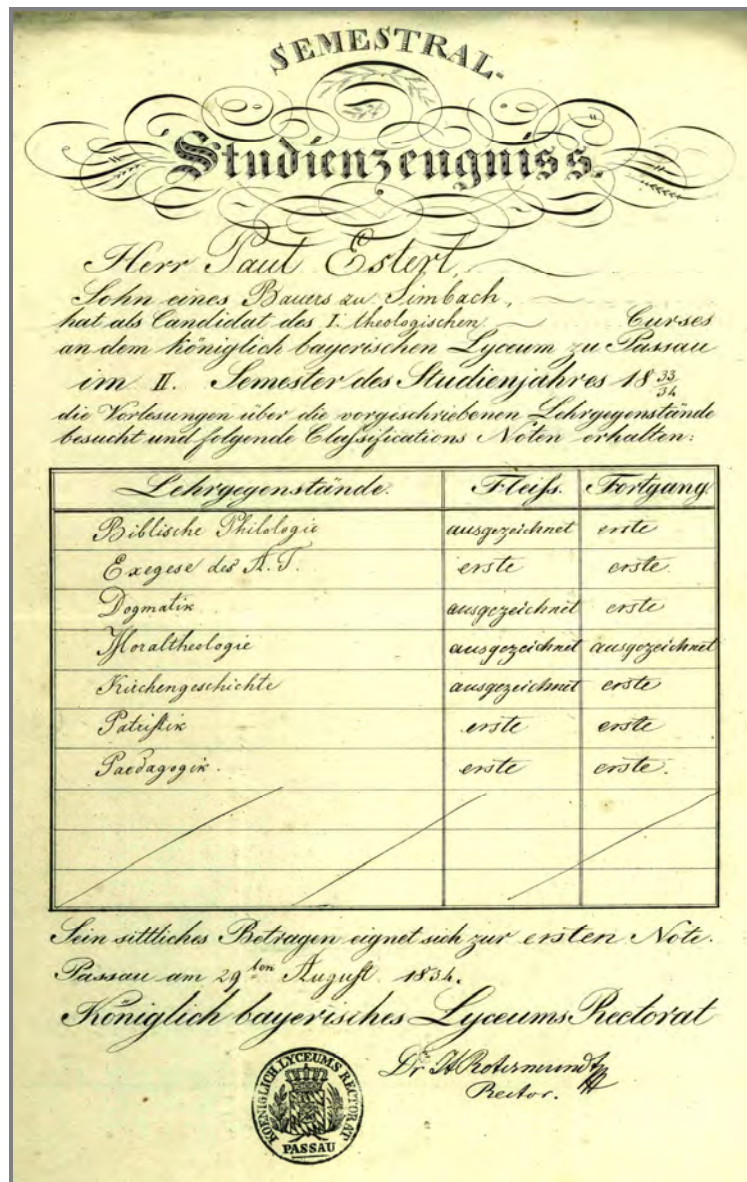 SEMESTRAL-
Studienzeugniss.
Herr Paul Esterl,
Sohn eines Bauers zu Simbach,
hat als Candidat des I. theologischen Curses
an dem königlich bayerischen Lyceum zu Passau
im II. Semester des Studienjahres 18 33/34
die Vorlesungen über die vorgeschriebenen Lehrgegenstände
besucht und folgende Classifications Noten erhalten:
Lehrgegenstände. Fleiss. Fortgang.
Biblische Philologie ausgezeichnet erste
Exegese des A. T. erste erste.
Dogmatik ausgezeichnet erste
Moraltheologie ausgezeichnet ausgezeichnet
Kirchengeschichte ausgezeichnet erste
Patristik erste erste
Paedagogik. erste erste.
Sein sittliches Betragen eignet sich zur ersten Note.
Passau am 29ten August 1834.
Königlich bayerisches Lyceums Rectorat
Dr. H Rotermundt
Rector.
KOENIGLICH LYCEUMS RECTORAT
PASSAU